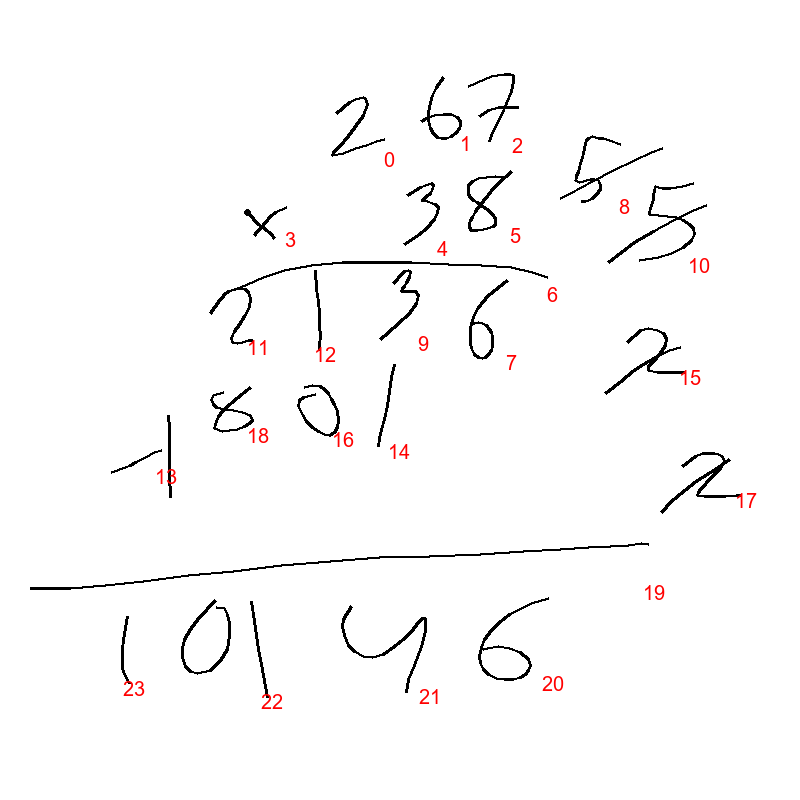 2 6 7
0 1 2
5
8
× 3 8
3 4 5
5
10
6
2 1 3 6
11 12 9 7
2
15
+ 8 0 1
13 18 16 14
2
17
19
1 0 1 4 6
23 22 21 20